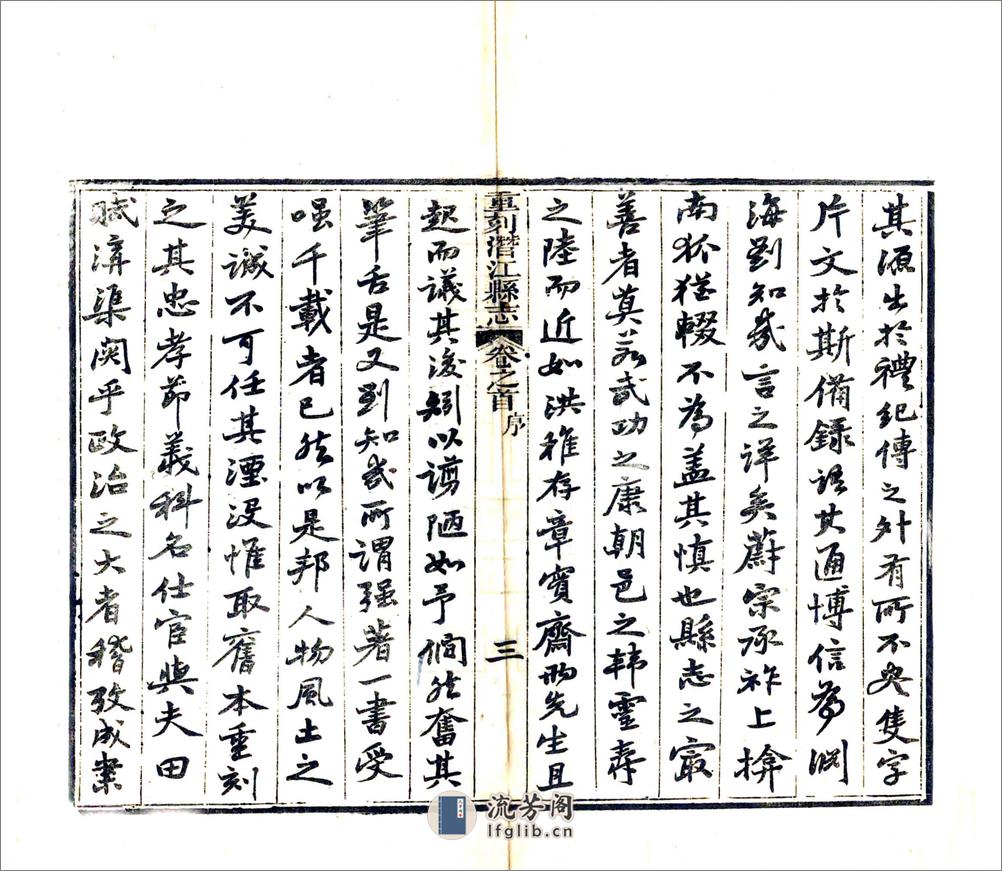 其源出於禮紀傳之外有所不隻字
片文於斯備錄語其通博信為淵
海劉知幾言之詳矣蔚宗承祚上揜
南狐猶輟不為蓋其慎也縣志之㝡
善者莫若武功之康朝邑之韓靈壽
之陸而近如洪稚存章實齋兩先生且
重刻潛江縣志 卷之首 序 三
起而議其後矧以謭陋如予僩然奮其
筆舌是又劉知幾所謂强著一書受
嗤千載者已然以是邦人物風土之
美誠不可任其湮沒惟取舊本重刻
之其忠孝節義科名仕宦與夫田
賦溝渠関乎政治之大者稽攷成案
流芳阁
lfglib.cn